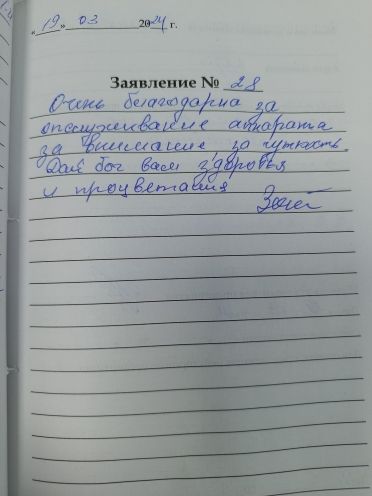 «19» 03 2024 г.
Заявление № 28
Очень благодарна за
обслуживание аппарата
за внимание, за чуткость.
Дай бог вам здоровья
и процветания